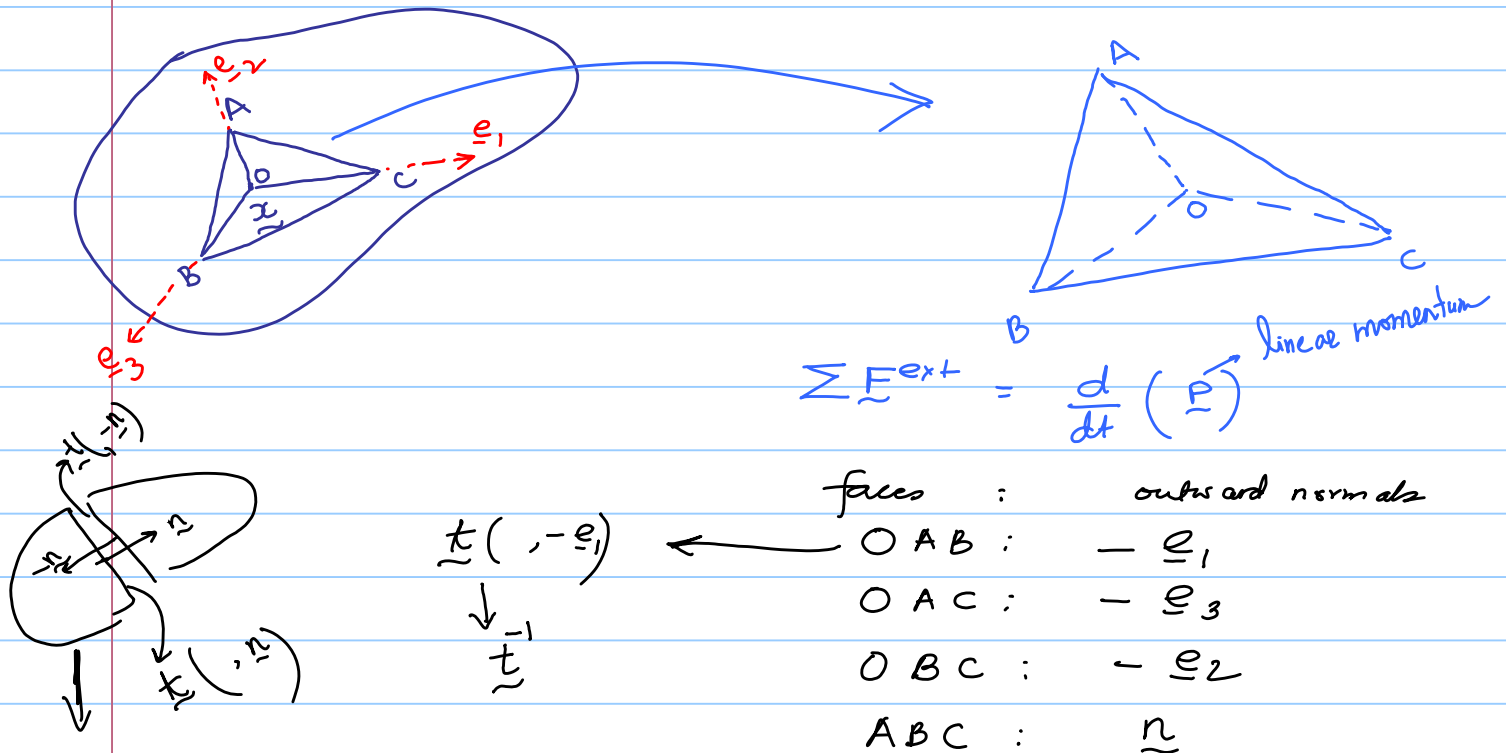 e₂
A
e₁
O
C
x
B
e₃
A
O
C
B
linear momentum
∑ F^ext = d/dt (P)
t( , -n)
n
-n
t( , n)
faces : outward normals
t( , -e₁) ← OAB : - e₁
OAC : - e₃
t⁻¹
OBC : - e₂
ABC : n